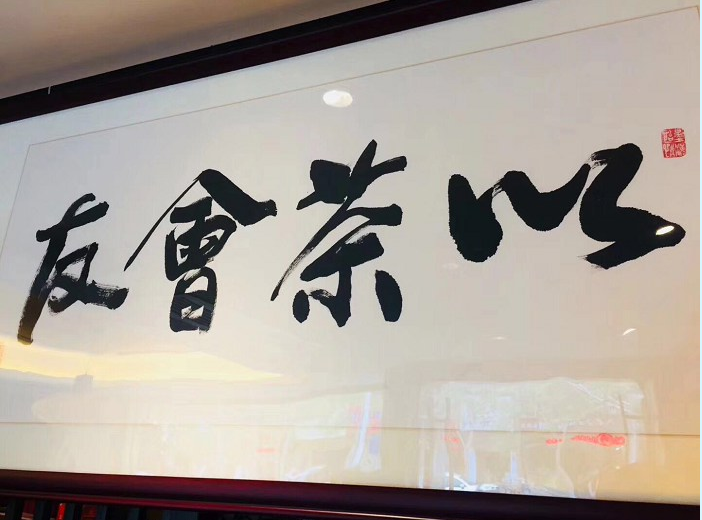 以茶會友